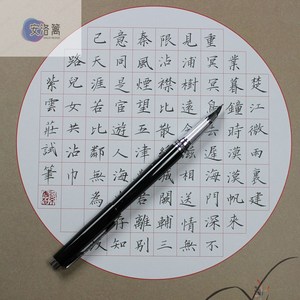 安洛篱
楚江微雨裏建
業暮鐘時漠漠帆來
重冥冥鳥遲海門深不
見浦樹遠情相送情無
限沾襟比散絲城闕輔三
秦風煙望五津君離別
意同是宦遊人存知
己天涯若比鄰無為
路兒女共沾巾
紫雲莊試筆